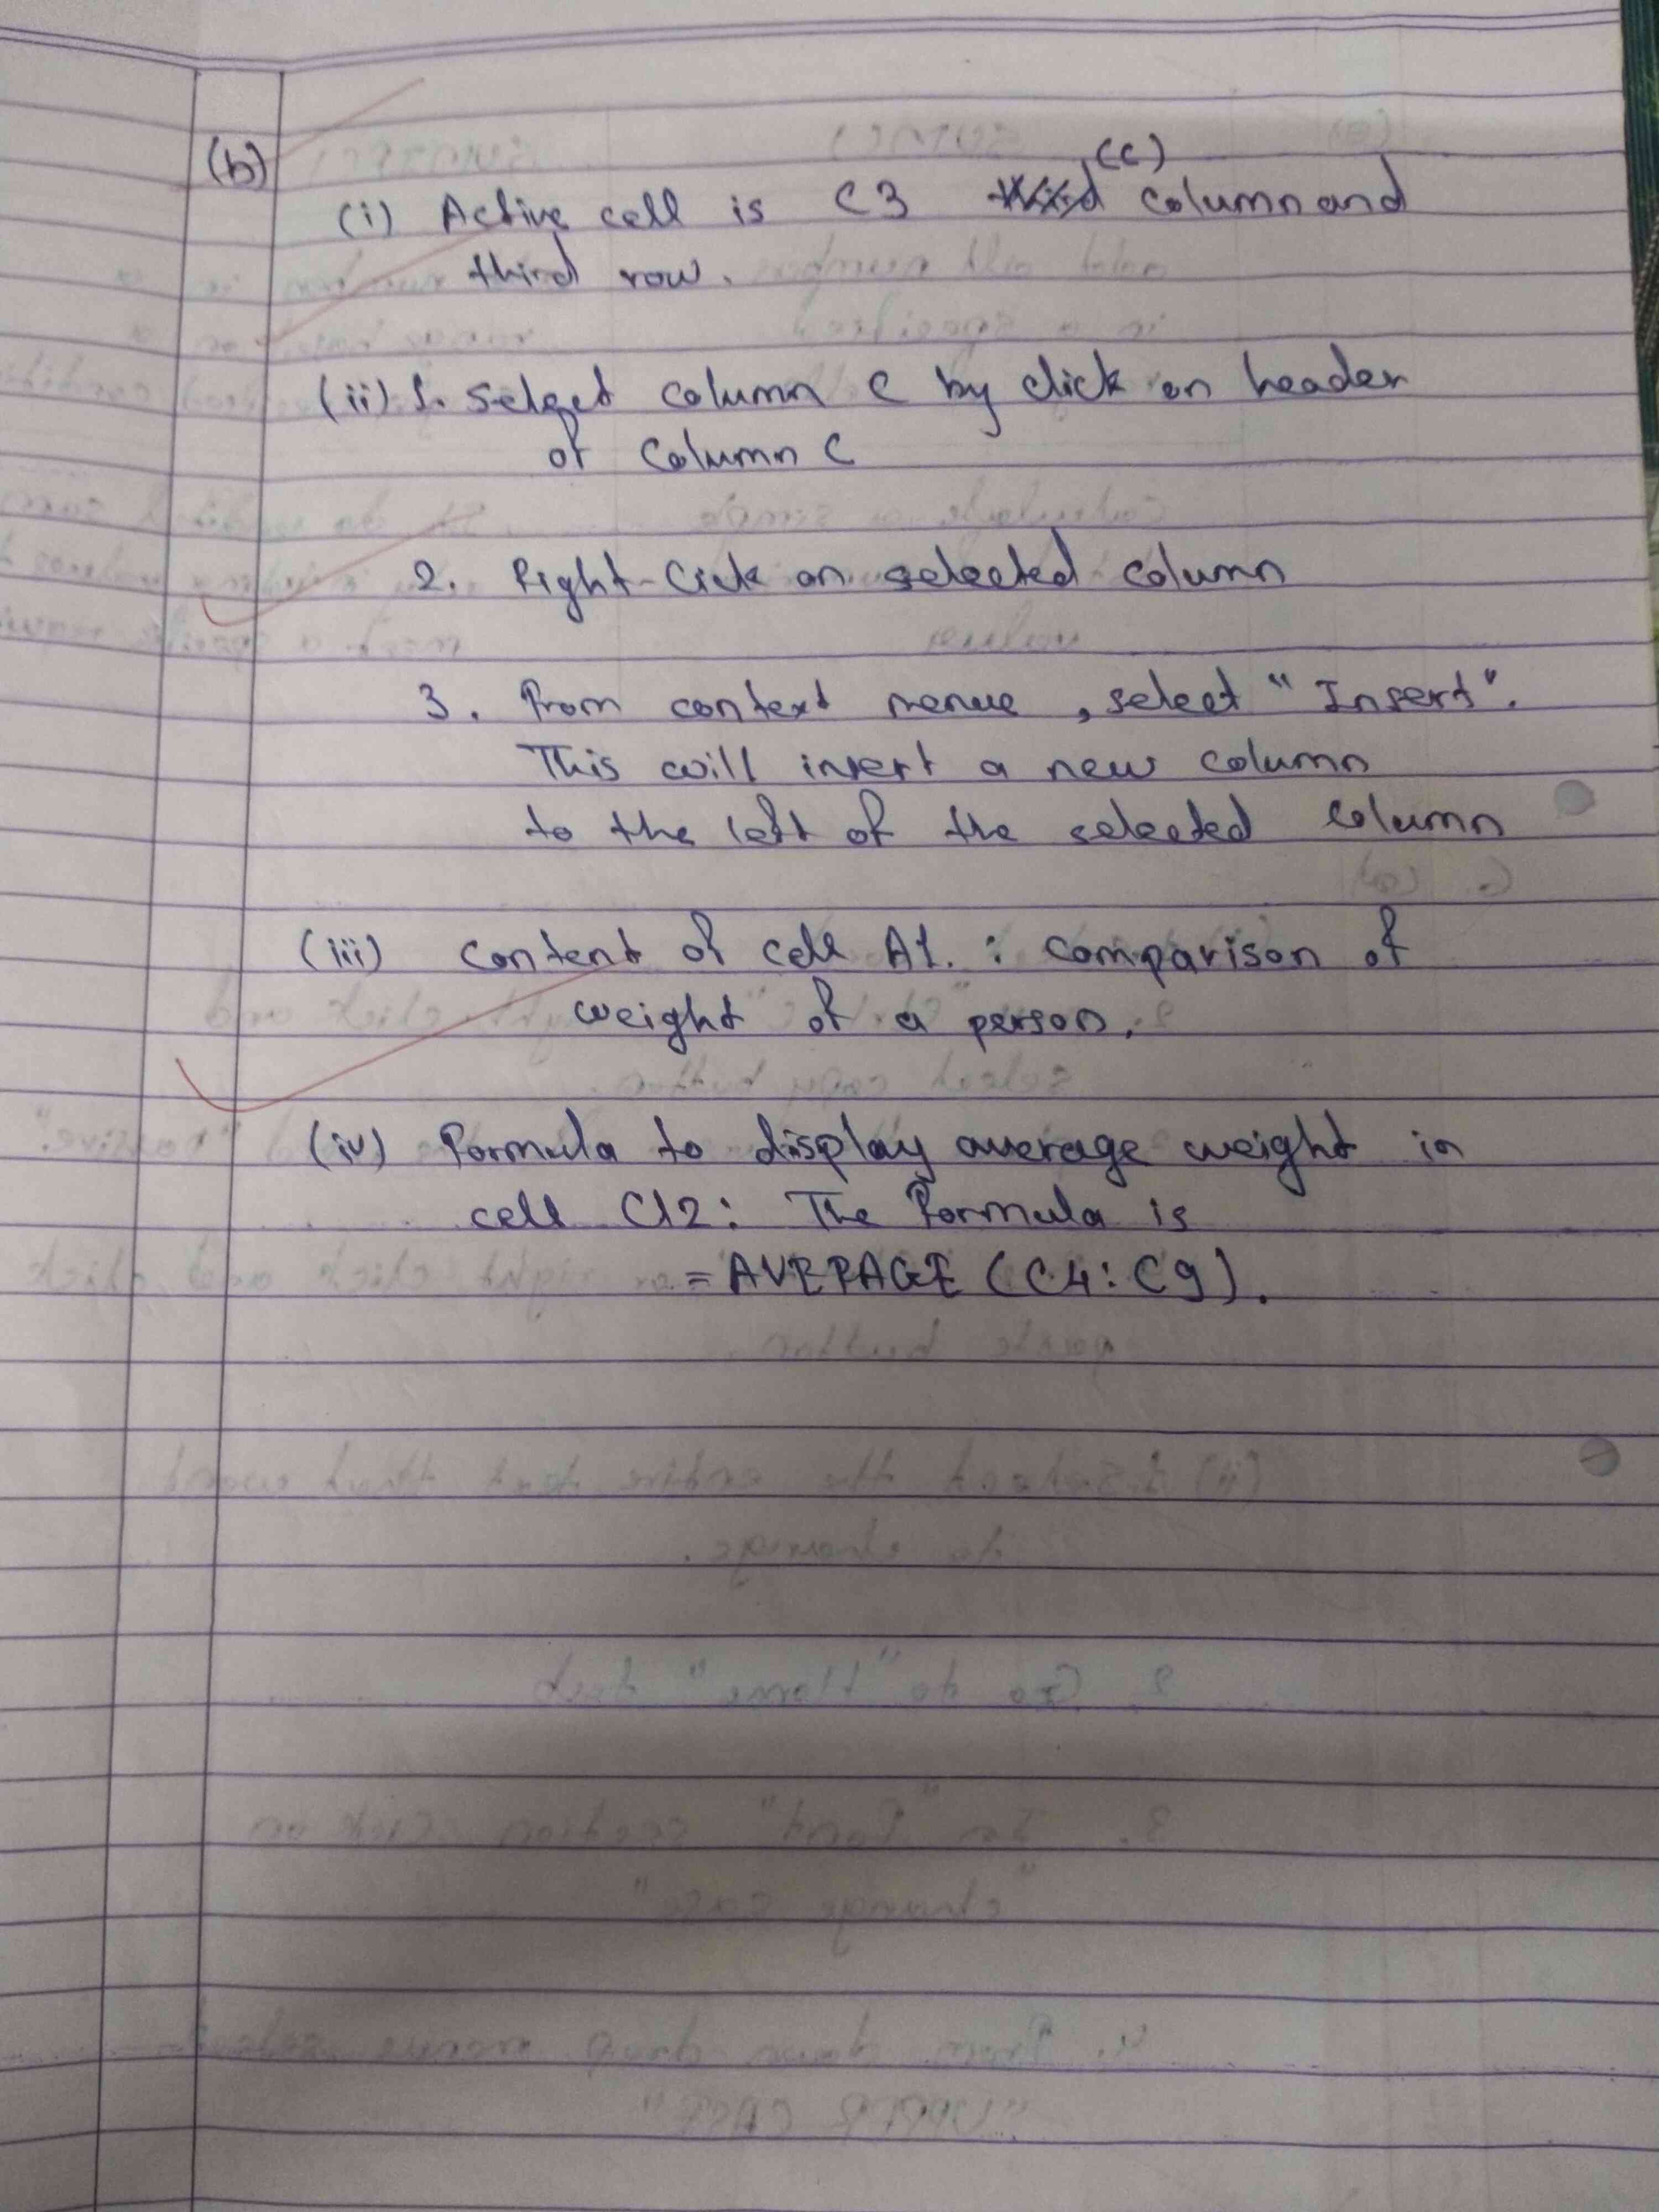 (b)
(i) Active cell is C3 (C) column and
third row.
(ii) 1. Select column C by click on header
of Column C
2. Right-Cick on selected column
3. From context menue, select "Insert".
This will insert a new column
to the left of the selected column
(iii) Content of cell A1. : Comparison of
weight of a person.
(iv) Formula to display average weight in
cell C12: The Formula is
= AVERAGE (C4:C9).